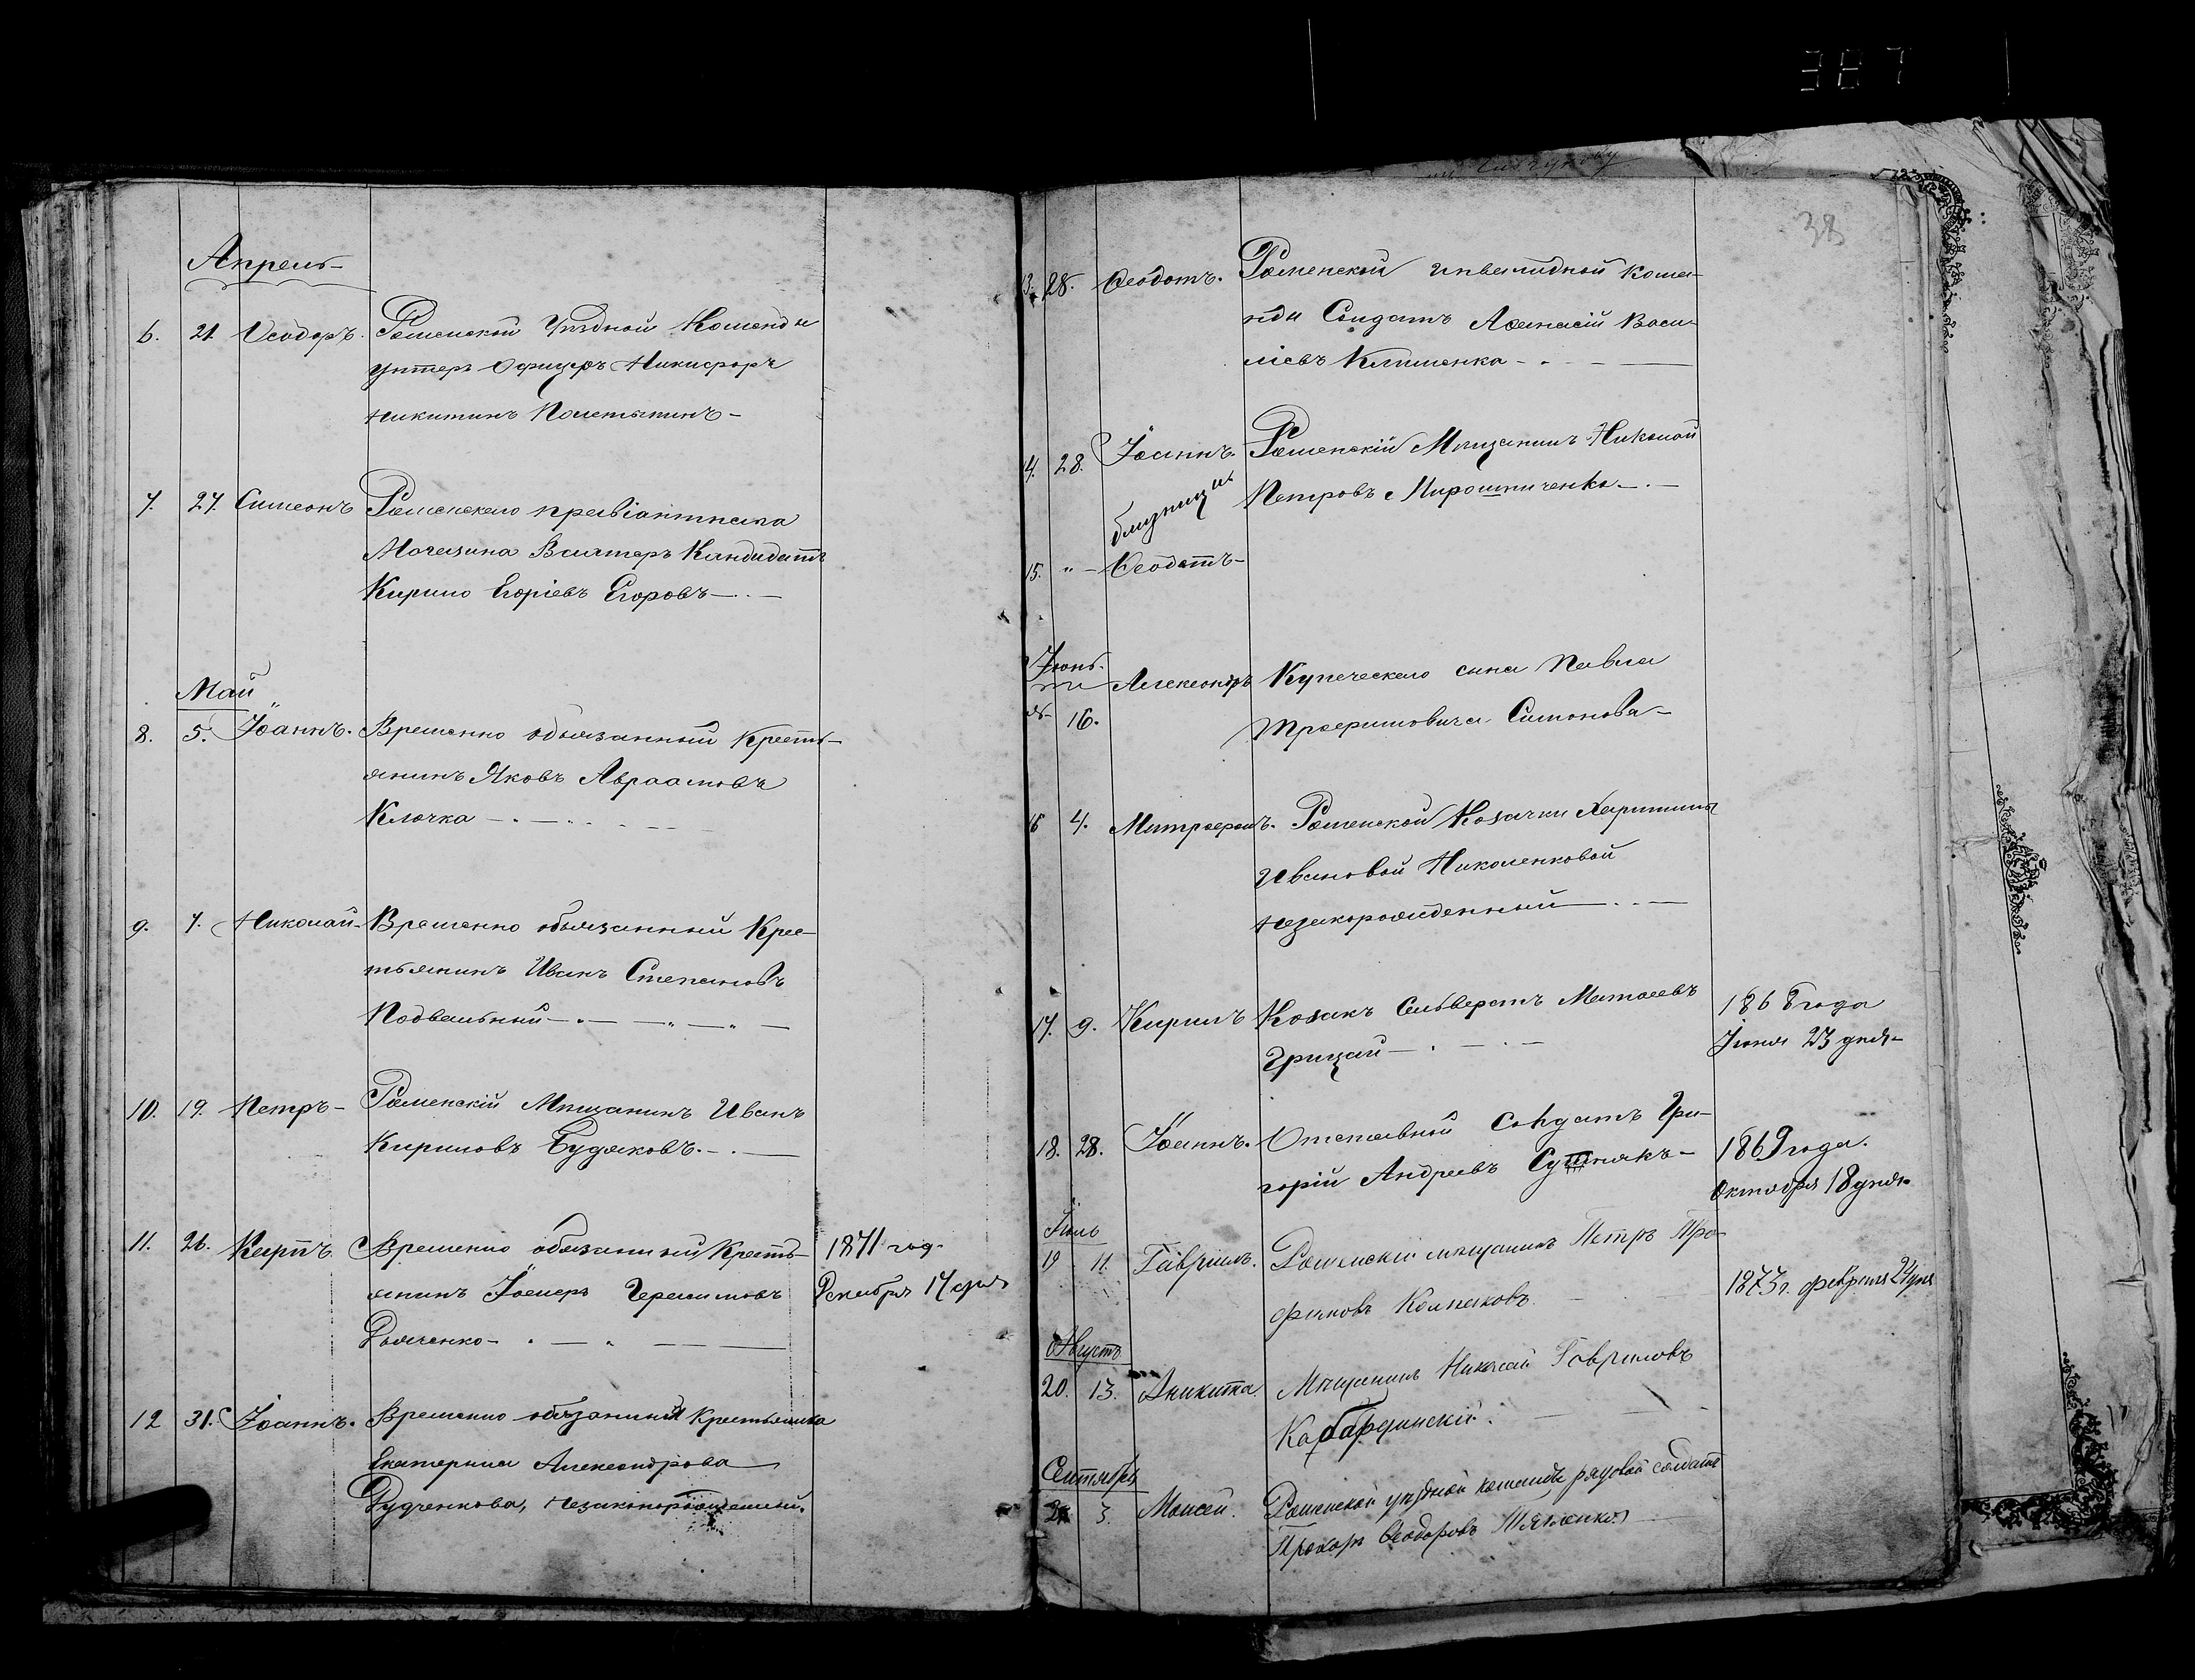 387
38
Апрель
6. 21. Ѳеодоръ. Роменской Уѣздной Команды
унтеръ Офицеръ Никифоръ
Никитинъ
7. 27. Симеонъ Роменскаго провіантскаго
Могазина Вахтеръ Кандидатъ
Кирило Егоріевъ Егоровъ
Май
8. 5. Іоаннъ. Временно обязанный Кресть-
янинъ Яковъ Авраамовъ
Клочка
9. 7. Николай Временно обязанный Крес-
тьянинъ Иванъ Степановъ
Подвальный
10. 19. Петръ Роменскій Мѣщанинъ Иванъ
Кириловъ Будяковъ.
11. 26. Карпъ. Временно обязанный Кресть-
янинъ Герасимовъ
Дьяченко
1871 год.
Декабря 17 дня
12 31. Іоаннъ. Временно обязанный Крестьянка
Екатерина Александрова
Рудченкова, незаконорожденный.
13. 28. Ѳеодотъ. Роменской инвалидной коман-
нды Солдатъ Аѳанасій Васи-
ліевъ Клименко
14. 28. Іоаннъ. Роменскій Мѣщанинъ Николай
Петровъ Мирошниченко
близнецы
15. " Ѳеодотъ
Іюнь
Александръ Купеческаго сына Павла
16. Трофимовича Симонова
16 4. Митрофанъ. Роменской Козачки Харитины
Ивановой Николенковой
незакорожденный
17. 9. Кирилъ Козакъ Сильверстъ Матвеевъ
Грицай
1868 года
Іюня 23 дня
18. 28. Іоаннъ. Отставной Солдатъ Гри-
горій Андреевъ Сушнякъ
1869 года.
Октября 18 дня.
Іюль
19 11. Гавріилъ. Роменскій мѣщанинъ Петръ Тро-
фимовъ Колпаковъ.
1873 г. февраля дня
Августъ
20. 13. Аникита. Мѣщанинъ Николай Гавриловъ
Кабардинскій.
Сентябрь
21 3. Моисей. Роменской уѣздной команды рядовой солдатъ
Прохоръ Ѳеодоровъ